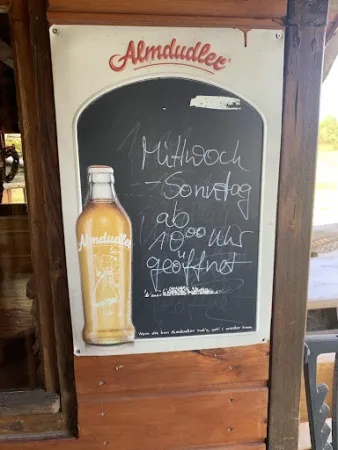 Almdudler
Mittwoch
- Sonntag
ab
10⁰⁰ Uhr
geöffnet
Almdudler
Wenn die kan Almdudler hab'n, geh' i wieder ham.